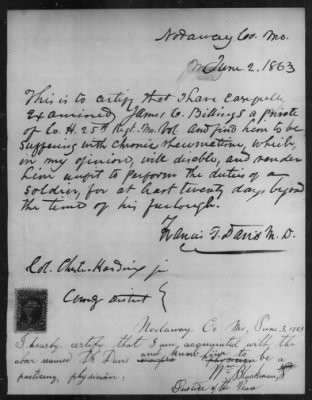 Nodaway Co. Mo.
June 2. 1863
This is to certify that I have carefully
examined James C. Billings a private
of Co. H. 25th Regt. Mo. Vol. and find him to be
suffering with chronic rheumatism, which,
in my opinion, will disable, and render
him unfit to perform the duties of a
soldier, for at least twenty days beyond
the time of his furlough.
Francis T. Davis M.D.
Col. Chester Harding jr
Comdg District
Nodaway Co Mo, June 3, 1863
I hereby certify that I am, acquainted with the
above named Dr Davis and know him to be a
practicing, physician.
Wm Blackman,
Justice of the Peace